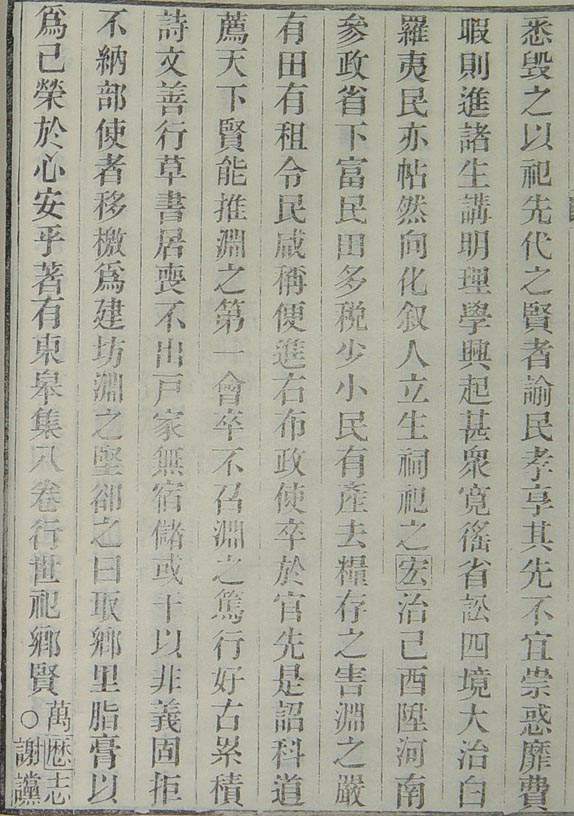 悉毀之以祀先代之賢者諭民孝享其先不宜崇惑靡費
暇則進諸生講明理學興起甚衆寛徭省訟四境大治白
羅夷民亦帖然向化叙人立生祠祀之宏治己酉陞河南
參政省下富民田多税少小民有產去糧存之害淵之嚴
有田有租令民咸稱便進右布政使卒於官先是詔科道
薦天下賢能推淵之第一會卒不召淵之篤行好古累積
詩文善行草書居喪不出戸家無宿儲或干以非義固拒
不納部使者移檄爲建坊淵之堅卻之曰取鄉里脂膏以
爲己榮於心安乎著有東皋集八卷行世祀鄉賢
萬歴志
○謝讜